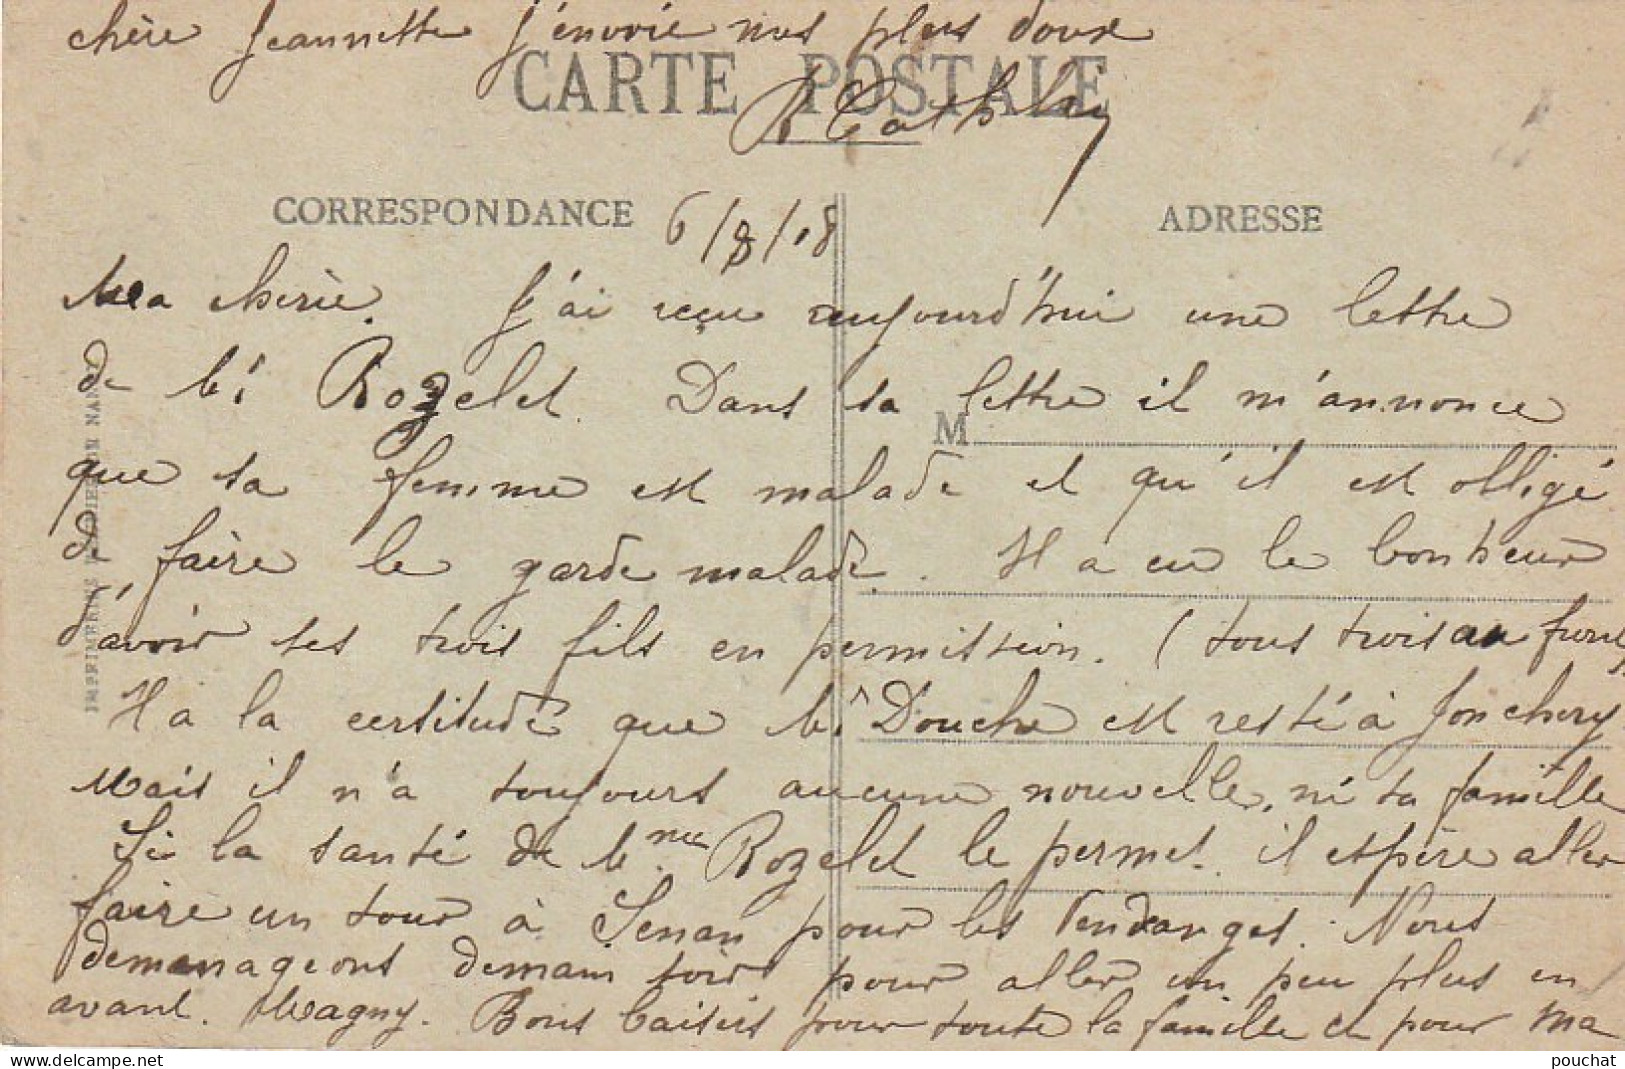 chère Jeannette j'envoie mes plus doux
CARTE POSTALE
CORRESPONDANCE 6/8/18 ADRESSE
Ma chérie. J'ai reçu aujourd'hui une lettre
de Rozelet. Dans sa lettre il m'annonce
M
que sa femme est malade et qu'il est obligé
de faire le garde malade. Il a eu le bonheur
d'avoir ses trois fils en permission. (tous trois au front)
Il a la certitude que Douche est resté à Jonchery
Mais il n'a toujours aucune nouvelle, ni sa famille
Si la santé de Rozelet le permet. il espère aller
faire un tour à Senan pour les Vendanges. Nous
demenageons demain soir pour aller un peu plus en
avant. Magny. Bons baisers pour toute la famille et pour ma
IMPRIMERIES NANCY
pouchat